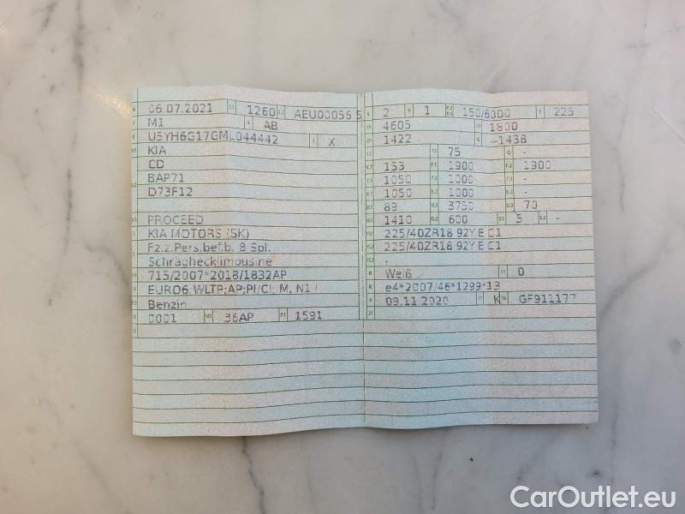 06.07.2021 1260 AEU00056 5
M1 AB
U5YH6G17GML044442 X
KIA
CD
BAP71
D73F12
PROCEED
KIA MOTORS (SK)
Fz.z.Pers.bef.b. 8 Spl.
Schräghecklimousine
715/2007*2018/1832AP
EURO6 WLTP;AP;PI/CI; M, N1 I
Benzin
0001 36AP 1591
2 1 150/6000 225
4605 1800
1422 -1438
75 -
153 1900 1900
1050 1000 -
1050 1000 -
89 3750 70
1410 600 5 -
225/40ZR18 92Y E C1
225/40ZR18 92Y E C1
-
Weiß 0
e4*2007/46*1299*13
09.11.2020 K GF911177
CarOutlet.eu